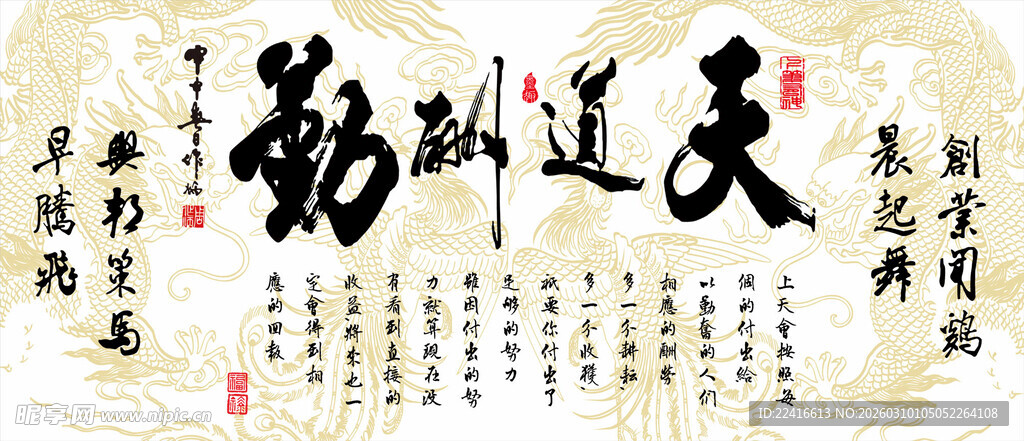 天道酬勤
創業聞鷄
晨起舞
上天會按照每
個的付出給
以勤奮的人們
相應的酬勞
多一分耕耘
多一分收獲
祇要你付出了
足够的努力
雖因付出的努
力就算現在没
有看到直接的
收益將來也一
定會得到相
應的回報
興邦策馬
早騰飛
昵享网 www.nipic.cn
ID:22416613 NO:20260310105052264108